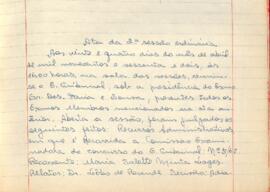 Ata da 2ª sessão ordinária
Aos vinte e quatro dias do mês de abril
de mil novecentos e sessenta e dois, às
16,00 horas, na sala das sessões, reuniu-
se o E. Tribunal, sob a presidência do Exmo
Sr. Des. Faria e Sousa, presentes todos os
Exmos Membros mencionados na ata an-
terior. Aberta a sessão, foram julgados os
seguintes feitos: Recursos administrativos
em que é recorrida a Comissão Exami-
nadora do concurso do E. Tribunal Nº 5/62
Recorrente: Maria Salette Lages.
Relator: Dr. Lobo de Rezende